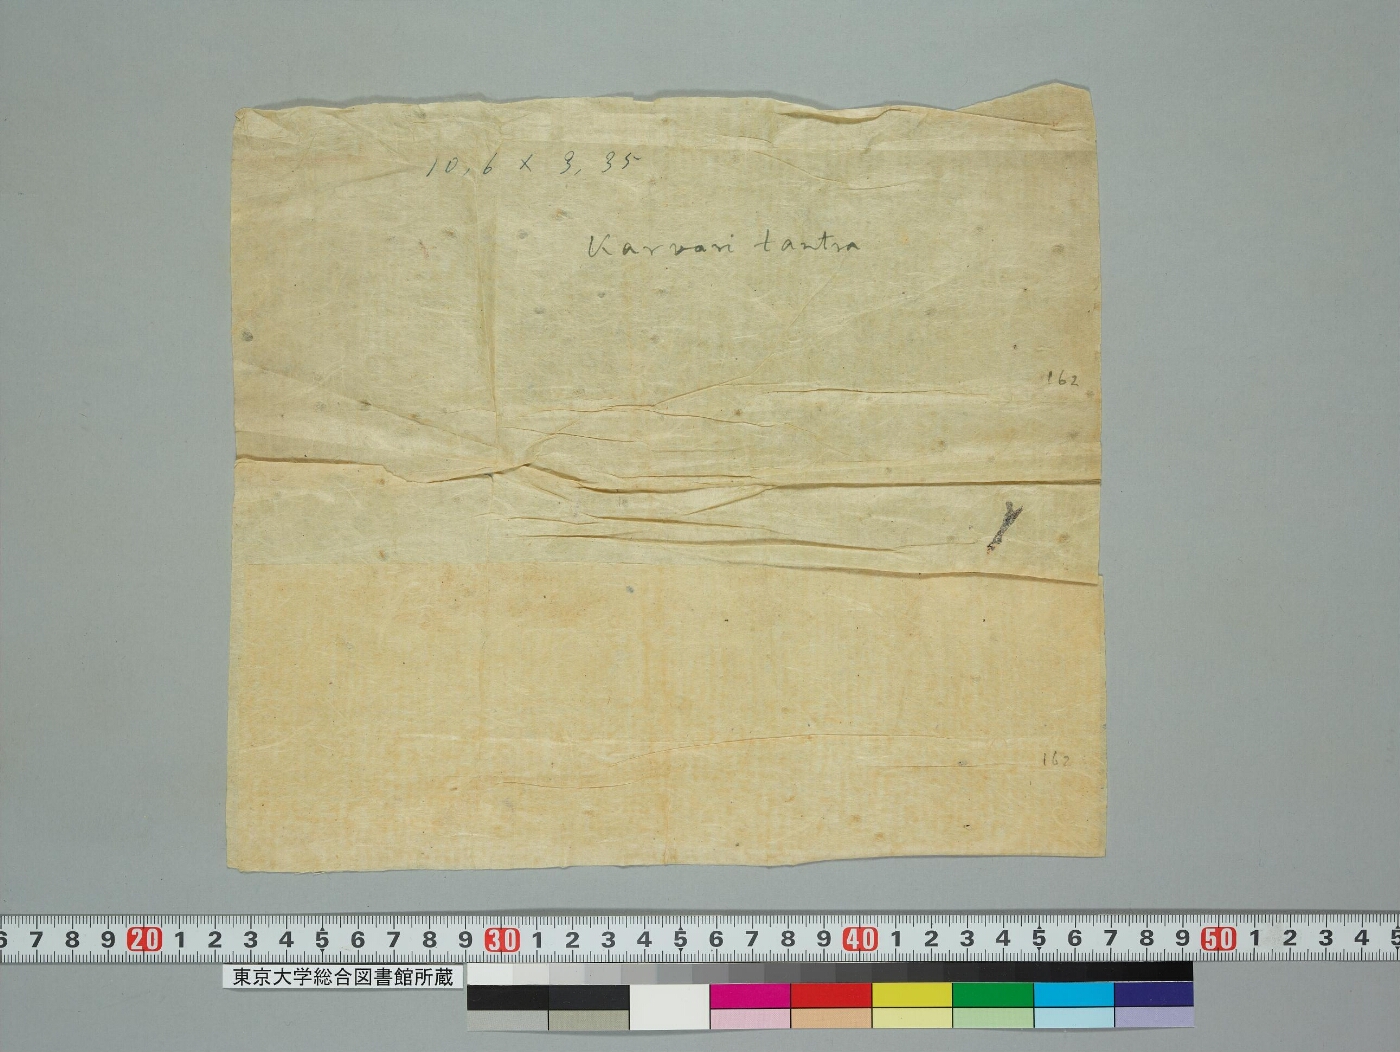 10,6 × 3,35
Karvari tantra
162
162
6 7 8 9 20 1 2 3 4 5 6 7 8 9 30 1 2 3 4 5 6 7 8 9 40 1 2 3 4 5 6 7 8 9 50 1 2 3 4 5
東京大学総合図書館所蔵